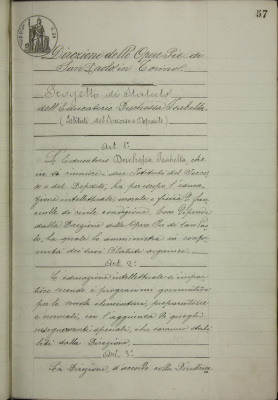 57
Direzione delle Opere Pie di
San Paolo in Torino
Progetto di Statuto
dell'Educatorio Duchessa Isabella
(Istituti del Soccorso e Deposito)
Art. 1º
L'Educatorio Duchessa Isabella, che
in sè riunisce i due Istituti del Soccor
so e del Deposito, ha per scopo l'educa
zione intellettuale, morale e fisica di fan
ciulle di civile condizione. Esso dipende
dalla Direzione delle Opere Pie di San Pao
lo, la quale lo amministra in confor
mità dei suoi Statuti organici.
Art. 2º
L'educazione intellettuale è impar
tita secondo i programmi governativi
per le scuole elementari, preparatorie
e normali, con l'aggiunta di quegli
insegnamenti speciali, che saranno stabi
liti dalla Direzione.
Art. 3º
La Direzione, d'accordo colla Direttrice